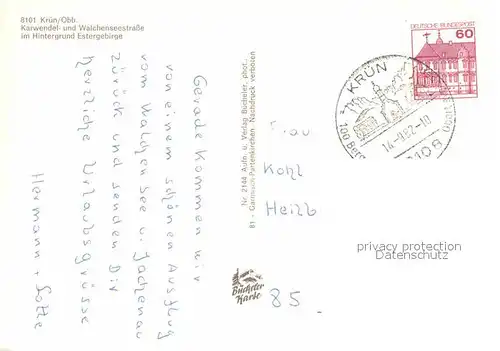 8101 Krün/Obb.
Karwendel- und Walchenseestraße
im Hintergrund Estergebirge
Gerade kommen wir
von einem schönen Ausflug
vom Walchensee u. Jachenau
zurück und senden Dir
herzliche Urlaubsgrüsse
Hermann + Lotte
Nr. 2144 Aufn. u. Verlag Bücheler, phot.,
81 - Garmisch-Partenkirchen Nachdruck verboten
Bücheler
Karte
DEUTSCHE BUNDESPOST
60
KRÜN
14.-9.82-10
8108
Frau
Kohl
Heilb
85
privacy protection
www.ansichtskartenversand.com